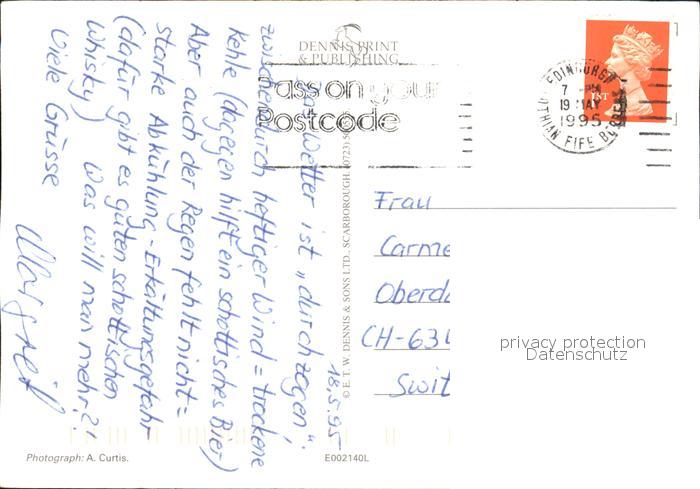 DENNIS PRINT
& PUBLISHING
Pass on your
Postcode
EDINBURGH
7 PM
19 MAY
1995
LOTHIAN FIFE BORDERS
1ST
18.5.95
Das Wetter ist „durchzogen“:
zwischendurch heftiger Wind = trockene
Kehle (dagegen hilft ein schottisches Bier)
Aber auch der Regen fehlt nicht =
starke Abkühlung - Erkältungsgefahr
(dafür gibt es guten schottischen
Whisky) Was will man mehr?!
Viele Grüsse
Margreit
© E.T.W. DENNIS & SONS LTD., SCARBOROUGH. (0723)
Frau
Carme
Oberd
CH-634
Swit
privacy protection
Datenschutz
Photograph: A. Curtis.
E002140L